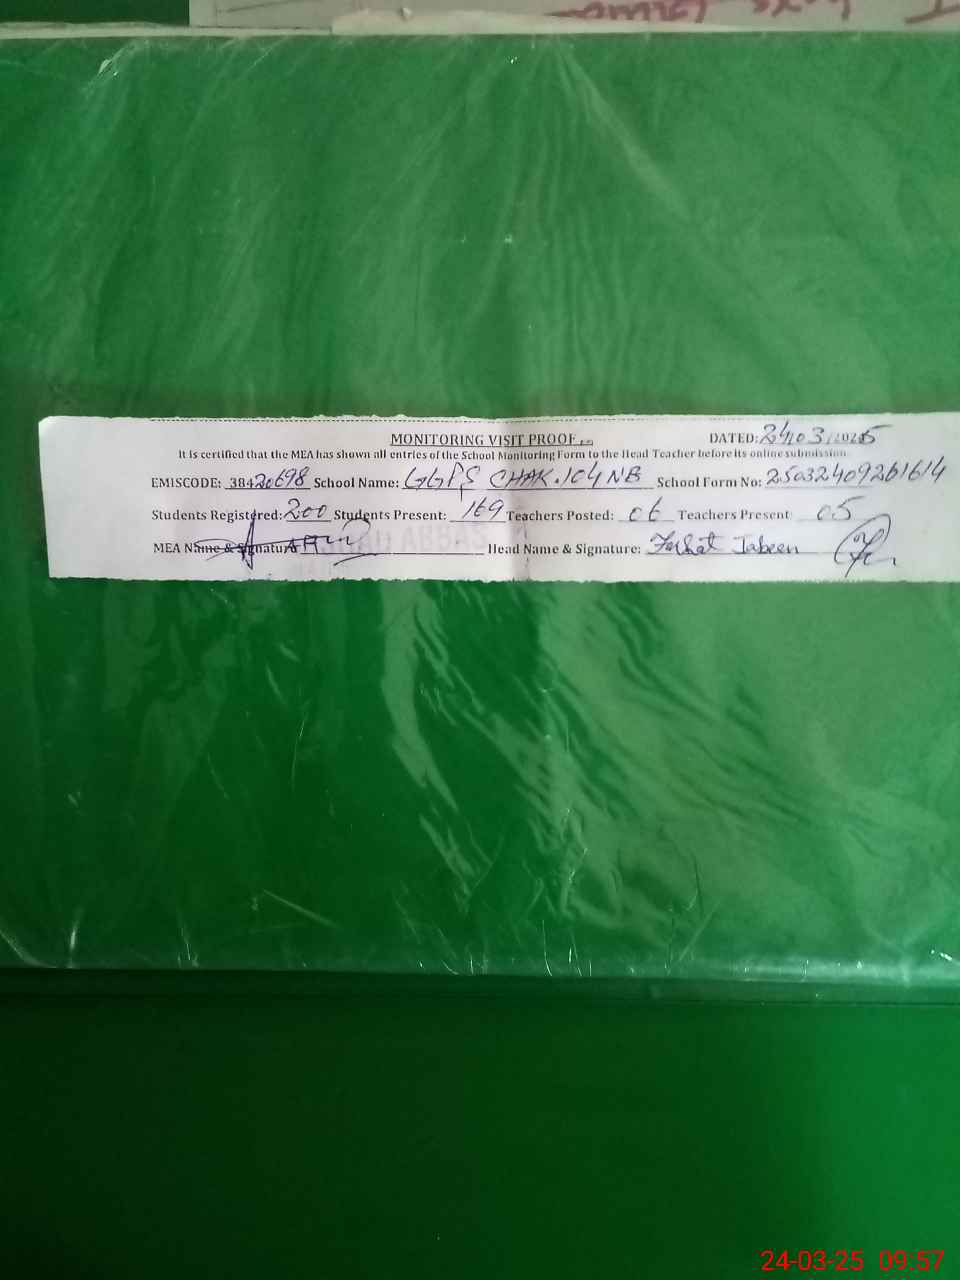 MONITORING VISIT PROOF
DATED: 24/03/2025
It is certified that the MEA has shown all entries of the School Monitoring Form to the Head Teacher before its online submission.
EMISCODE: 38420698 School Name: GGPS CHAK.104NB School Form No: 25032409261614
Students Registered: 200 Students Present: 169 Teachers Posted: 06 Teachers Present 05
MEA Name & Signature Head Name & Signature: Farhat Jabeen
24-03-25 09:57